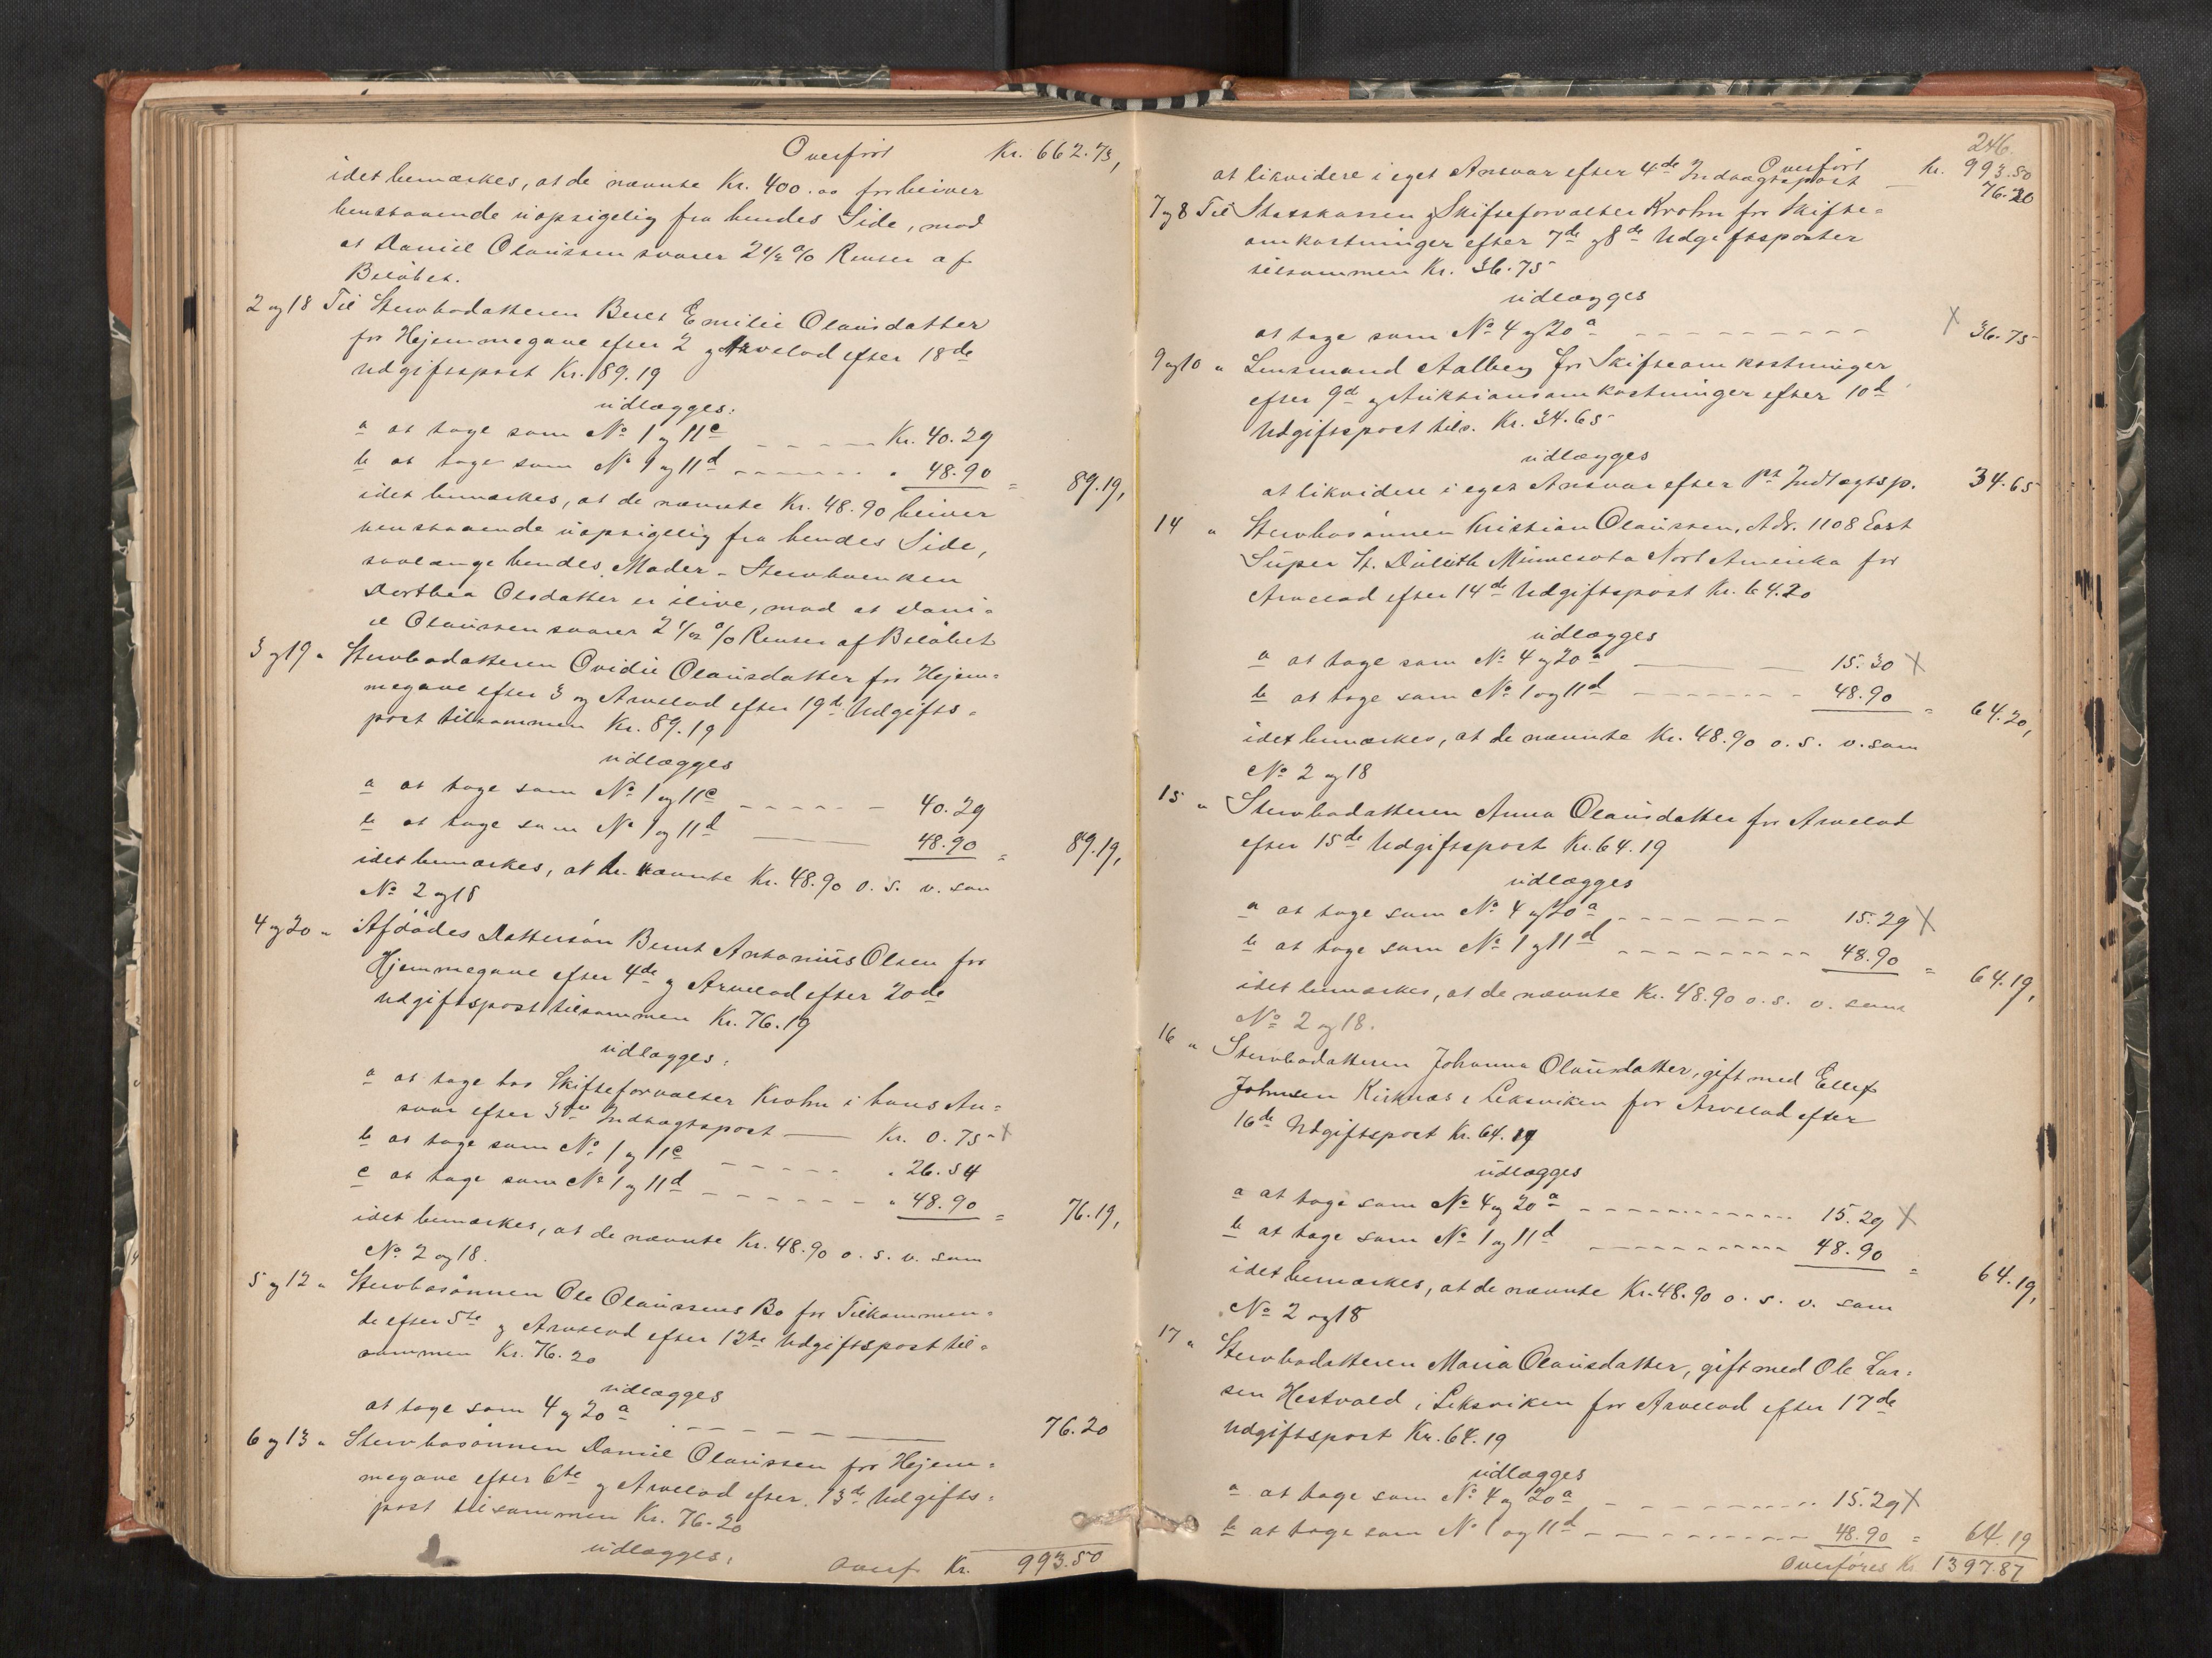 Overført Kr. 662.73,
idet bemærkes, at de nævnte Kr. 400.00 forbeiver
henstaaende uopsigelig fra hendes Side, mod
at Daniel Olaussen svarer 2 1/2 % Renter af
Beløbet.
2 og 18 Til Stervbodatteren Beret Emilie Olausdatter
for Hjemmegave efter 2 og Arvelod efter 18de
Udgiftspost Kr. 89.19
udlægges:
a at tage som No 1 og 11c - - - - - Kr. 40.29
b at tage som No 1 og 11d - - - - - " 48.90 = 89.19,
idet bemærkes, at de nævnte Kr. 48.90 beiver
henstaaende uopsigelig fra hendes Side,
saalænge hendes Moder - Stervboenken
Dorthea Olsdatter er ilive, mod at Dani-
el Olaussen svarer 2 1/2 % Renter af Beløbet
3 og 19 " Stervbodatteren Ovidie Olausdatter for Hjem-
megave efter 3 og Arvelod efter 19de Udgifts-
post tilsammen Kr. 89.19
udlægges
a at tage som No 1 og 11c - - - - - 40.29
b at tage som No 1 og 11d ——— 48.90 = 89.19,
idet bemærkes, at de nævnte Kr. 48.90 o. s. v. som
No 2 og 18
4 og 20 " Afdødes Dattersøn Bernt Antonius Olsen for
Hjemmegave efter 4de og Arvelod efter 20de
Udgiftspost tilsammen Kr. 76.19
udlægges:
a at tage hos Skifteforvalter Krohn i hans An-
svar efter 3die Indtægtspost —— Kr. 0.75 X
b at tage som No 1 og 11c - - - - - " 26.54
c at tage som No 1 og 11d - - - - - " 48.90 = 76.19,
idet bemærkes, at de nævnte Kr. 48.90 o. s. v. som
No 2 og 18.
5 og 12 " Stervbosønnen Ole Olaussens Bo for Tilkommen-
de efter 5te og Arvelod efter 12te Udgiftspost til-
sammen Kr. 76.20
udlægges
at tage som 4 og 20a - - - - - 76.20
6 og 13 " Stervbosønnen Daniel Olaussen for Hjem-
megave efter 6te og Arvelod efter 13de Udgifts-
post tilsammen Kr. 76.20
udlægges:
Overf. Kr. 993.50
246.
Overført Kr. 993.50
at likvidere i eget Ansvar efter 4de Indtægtspost — 76.20
7 og 8 Til Statskassen og Skifteforvalter Krohn for Skifte-
omkostninger efter 7de og 8de Udgiftsposter
tilsammen Kr. 36.75
udlægges
at tage som No 4 og 20a - - - - - X 36.75
9 og 10 " Lensmand Aalberg for Skifteomkostninger
efter 9d og Auktionsomkostninger efter 10d
Udgiftspost tils. Kr. 34.65
udlægges
at likvidere i eget Ansvar efter 1st Indtægtsp. 34.65
14 " Stervbosønnen Kristian Olaussen, Adr. 1108 East
Super St. Duluth Minnesota Nort Amerika for
Arvelod efter 14de Udgiftspost Kr. 64.20
udlægges
a at tage som No 4 og 20a ——— 15.30 X
b at tage som No 1 og 11d - - - - - 48.90 = 64.20,
idet bemærkes, at de nævnte Kr. 48.90 o. s. v. som
No 2 og 18
15 " Stervbodatteren Anna Olausdatter for Arvelod
efter 15de Udgiftspost Kr. 64.19
udlægges
a at tage som No 4 og 20a - - - - - 15.29 X
b at tage som No 1 og 11d - - - - - 48.90 = 64.19,
idet bemærkes, at de nævnte Kr. 48.90 o. s. v. som
No 2 og 18.
16 " Stervbodatteren Johanna Olausdatter, gift med Ellef
Johnsen Kirknæs i Leksviken for Arvelod efter
16de Udgiftspost Kr. 64.19
udlægges
a at tage som No 4 og 20a - - - - - 15.29 X
b at tage som No 1 og 11d - - - - - 48.90 = 64.19,
idet bemærkes, at de nævnte Kr. 48.90 o. s. v. som
No 2 og 18
17 " Stervbodatteren Maria Olausdatter, gift med Ole Lar-
sen Hestvold i Leksviken for Arvelod efter 17de
Udgiftspost Kr. 64.19
udlægges
a at tage som No 4 og 20a - - - - - 15.29 X
b at tage som No 1 og 11d - - - - - 48.90 = 64.19
Overføres Kr. 1397.87